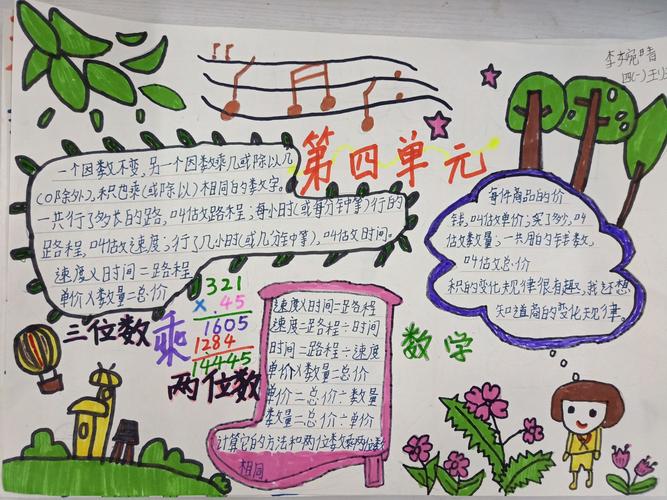 李婉晴
四(一)班
第四单元
一个因数不变,另一个因数乘几或除以几
(0除外),积也乘(或除以)相同的数字。
一共行了多长的路,叫做路程;每小时(或每分钟等)行的
路程,叫做速度;行了几小时(或几分钟等),叫做时间。
速度×时间=路程
单价×数量=总价
每件商品的价
钱,叫做单价;买了多少,叫
做数量;一共用的钱数,
叫做总价
积的变化规律很有趣,我还想
知道商的变化规律。
三位数
乘
两位数
321
×45
1605
1284
14445
速度×时间=路程
速度=路程÷时间
时间=路程÷速度
单价×数量=总价
单价=总价÷数量
数量=总价÷单价
计算它的方法和两位数乘两位数
相同
数字